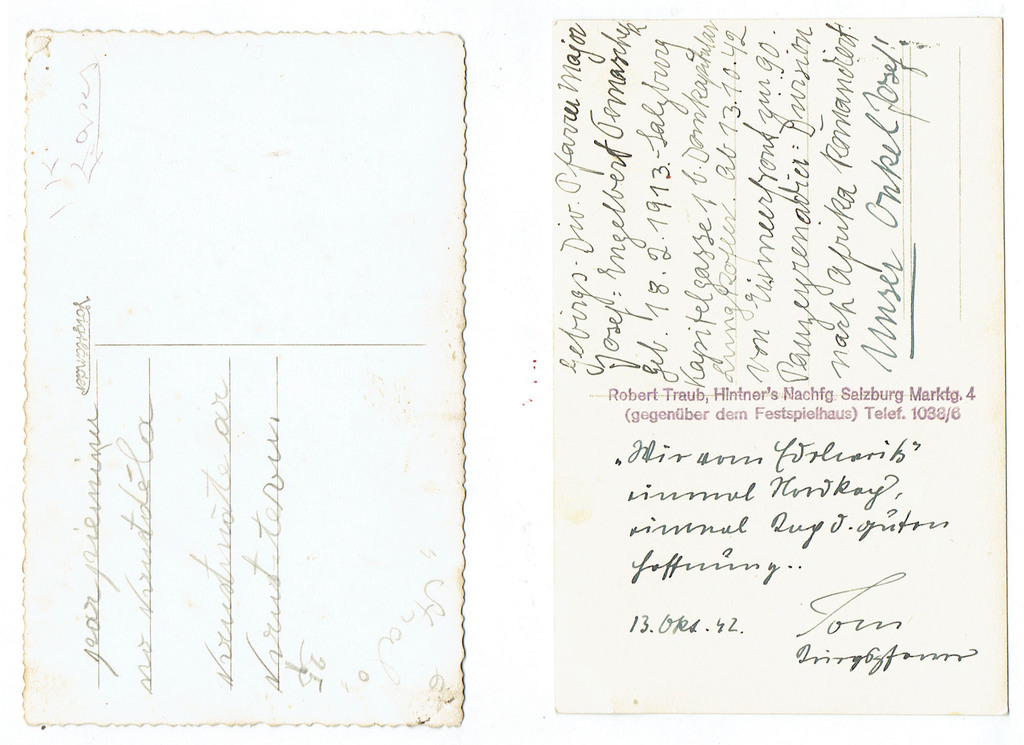 Voigtländer
par piemiņu
no krustdēla
krustmātear
krust tevu
Gebirgs-Div. Pfarrer Major
Josef: Engelbert Tomaschek
geb. 18.2.1913-Salzburg
Kapitelgasse 1 b. Domkapitular
ab 13.10.42
von Eismeerfront zur 90.
Panzergrenadier: Division
nach Afrika komandiert
Unser Onkel Josef!
Robert Traub, Hintner's Nachfg. Salzburg Marktg. 4
(gegenüber dem Festspielhaus) Telef. 1038/6
„Wir vom Edelweiß"
einmal Nordkap,
einmal Kap d. guten
Hoffnung..
13. Okt. 42. Tom
Kriegspfarrer